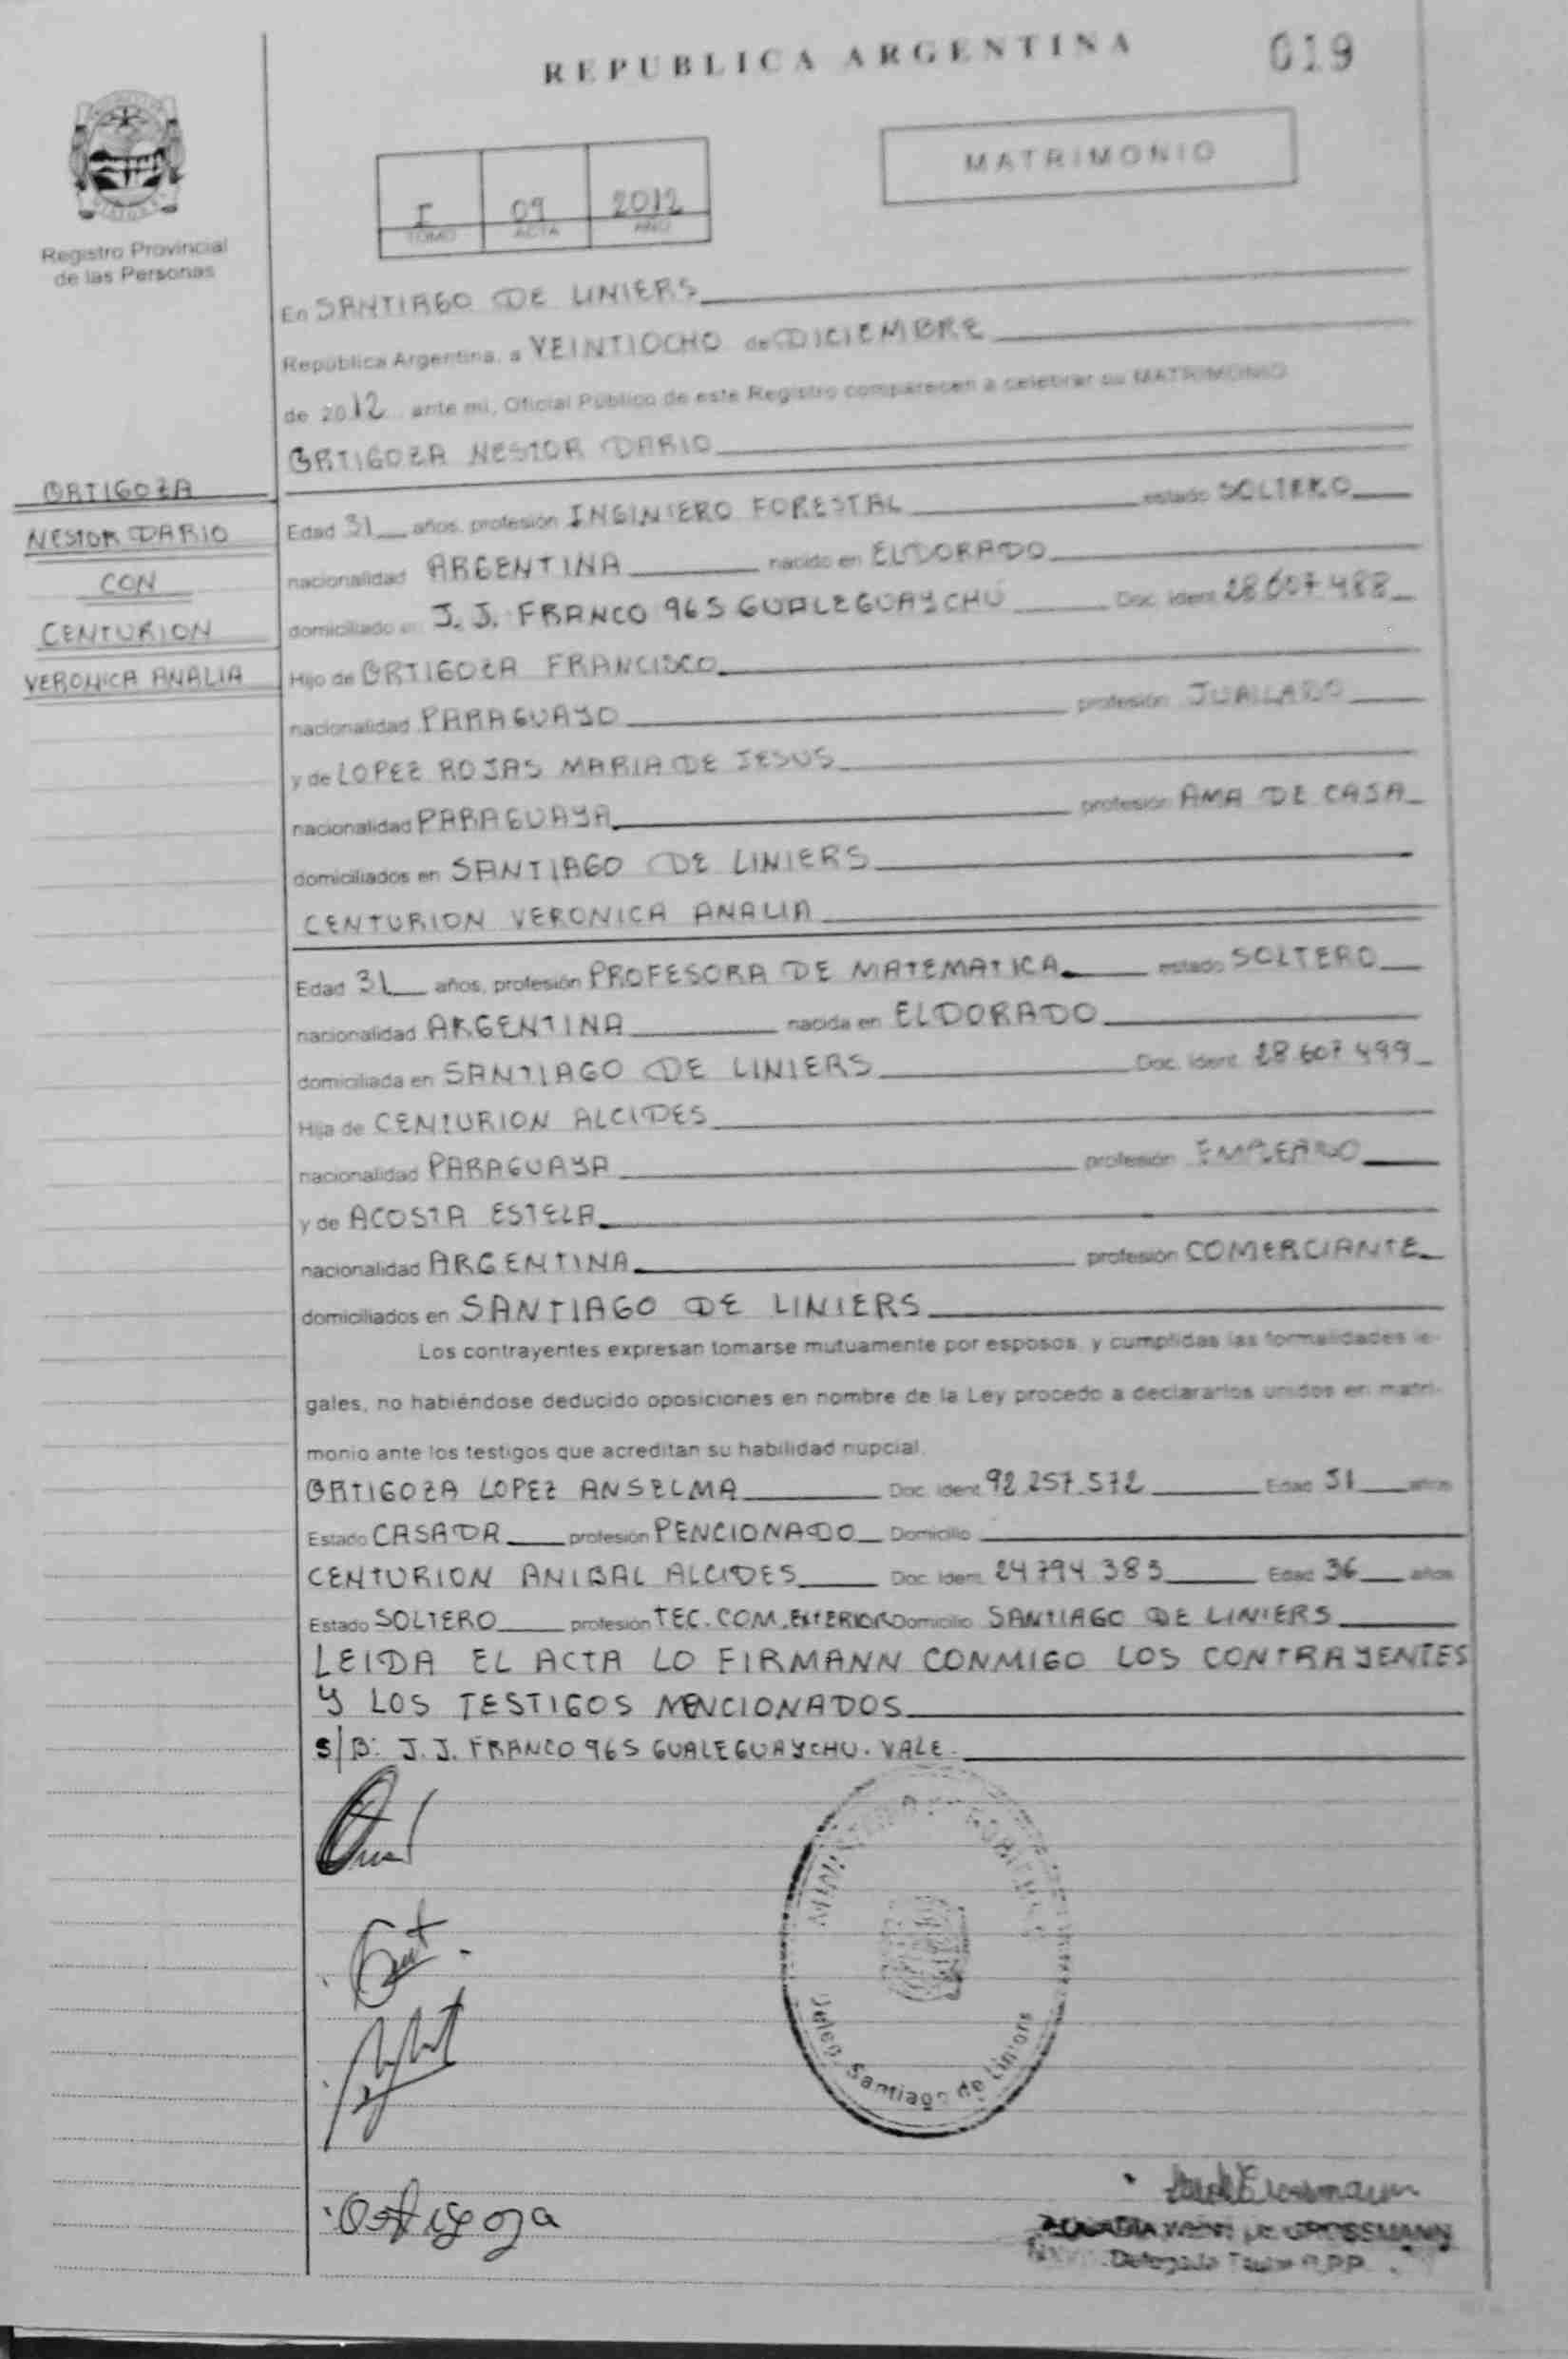 REPUBLICA ARGENTINA
019
MATRIMONIO
I 09 2012
TOMO ACTA AÑO
Registro Provincial
de las Personas
En SANTIAGO DE LINIERS
República Argentina, a VEINTIOCHO de DICIEMBRE
de 2012 ante mi, Oficial Público de este Registro comparecen a celebrar su MATRIMONIO
ORTIGOZA NESTOR DARIO
ORTIGOZA
NESTOR DARIO
CON
CENTURION
VERONICA ANALIA
Edad 31 años, profesión INGINIERO FORESTAL estado SOLTERO
nacionalidad ARGENTINA nacido en ELDORADO
domiciliado en J. J. FRANCO 965 GUALEGUAYCHÚ Doc. Ident. 28.607.488
Hijo de ORTIGOZA FRANCISCO
nacionalidad PARAGUAYO profesión JUAILADO
y de LOPEZ ROJAS MARIA DE JESUS
nacionalidad PARAGUAYA profesión AMA DE CASA
domiciliados en SANTIAGO DE LINIERS
CENTURION VERONICA ANALIA
Edad 31 años, profesión PROFESORA DE MATEMATICA estado SOLTERO
nacionalidad ARGENTINA nacida en ELDORADO
domiciliada en SANTIAGO DE LINIERS Doc. Ident. 28.607.499
Hija de CENTURION ALCIDES
nacionalidad PARAGUAYA profesión EMPLEADO
y de ACOSTA ESTELA
nacionalidad ARGENTINA profesión COMERCIANTE
domiciliados en SANTIAGO DE LINIERS
Los contrayentes expresan tomarse mutuamente por esposos, y cumplidas las formalidades le-
gales, no habiéndose deducido oposiciones en nombre de la Ley procedo a declararlos unidos en matri-
monio ante los testigos que acreditan su habilidad nupcial.
ORTIGOZA LOPEZ ANSELMA Doc. Ident. 92.257.572 Edad 51 años
Estado CASADA profesión PENCIONADO Domicilio
CENTURION ANIBAL ALCIDES Doc. Ident. 24.794.383 Edad 36 años
Estado SOLTERO profesión TEC. COM. EXTERIOR Domicilio SANTIAGO DE LINIERS
LEIDA EL ACTA LO FIRMANN CONMIGO LOS CONTRAYENTES
Y LOS TESTIGOS MENCIONADOS
S/B: J. J. FRANCO 965 GUALEGUAYCHU. VALE.
MINISTERIO DE GOBIERNO
Deleg. Santiago de Liniers
Ortigoza
DE GROSSMANN